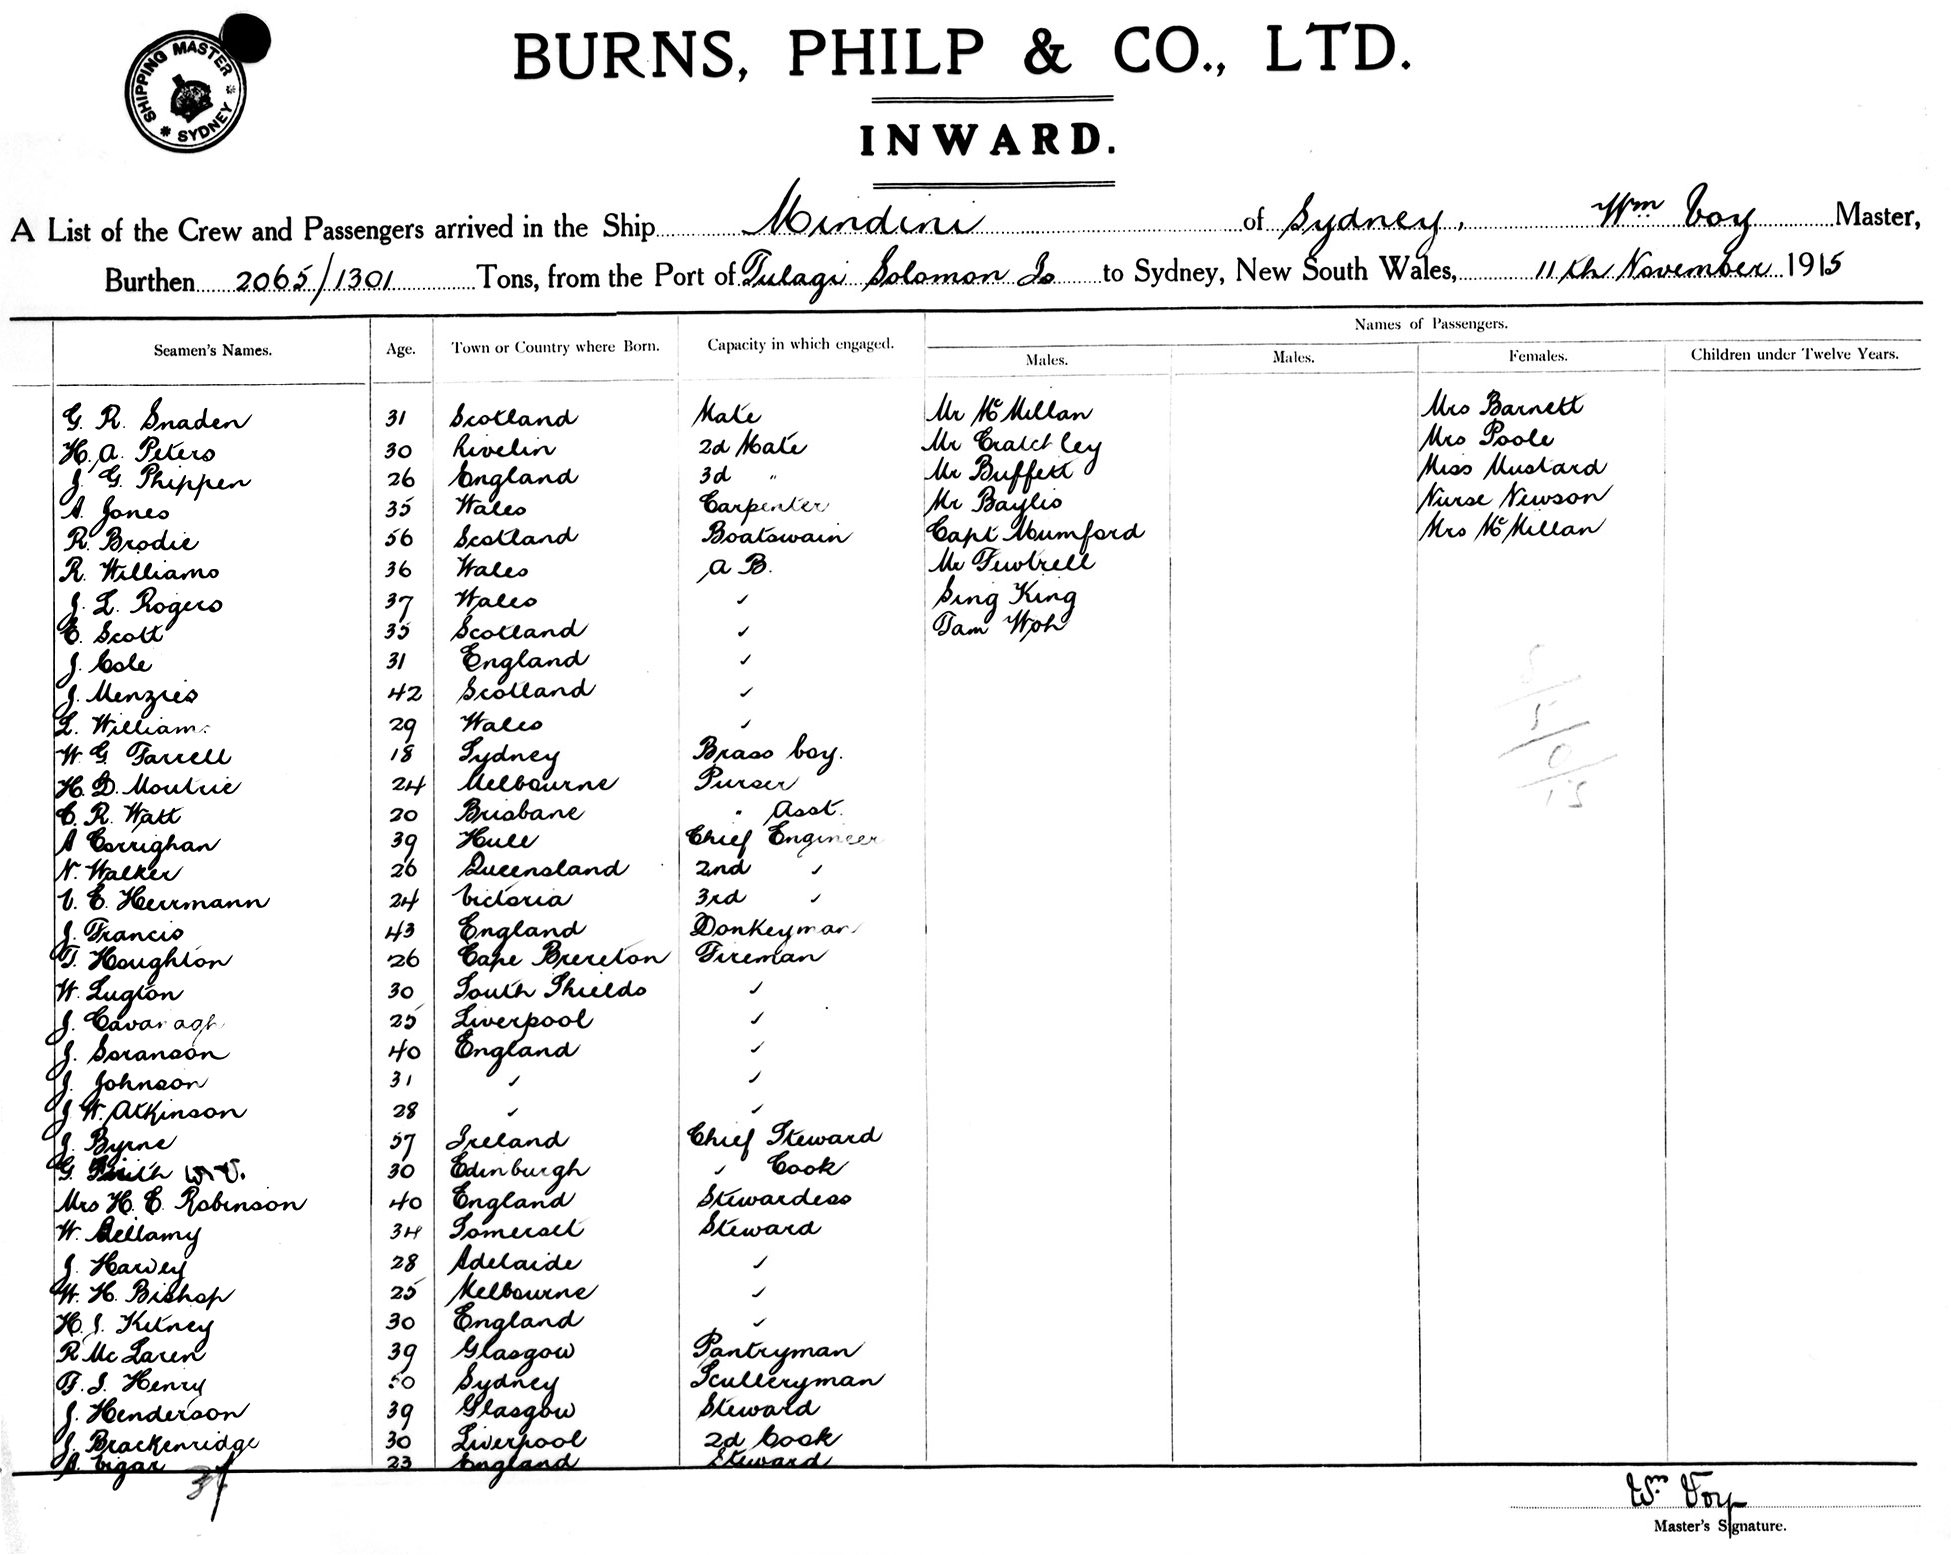 SHIPPING MASTER
* SYDNEY *
BURNS, PHILP & CO., LTD.
INWARD.
A List of the Crew and Passengers arrived in the Ship Mindini of Sydney, Wm Voy Master,
Burthen 2065/1301 Tons, from the Port of Tulagi Solomon Is to Sydney, New South Wales, 11th November 1915
Names of Passengers.
Seamen's Names. Age. Town or Country where Born. Capacity in which engaged. Males. Males. Females. Children under Twelve Years.
G. R. Snaden 31 Scotland Mate Mr McMillan Mrs Barnett
H. A. Peters 30 Livelin 2d Mate Mr Cratchley Mrs Poole
J. G. Phippen 26 England 3d " Mr Buffett Miss Mustard
A. Jones 35 Wales Carpenter Mr Baylis Nurse Newson
R. Brodie 56 Scotland Boatswain Capt Mumford Mrs McMillan
R. Williams 36 Wales A B. Mr Fewtrell
J. L. Rogers 37 Wales ✓ Sing King
C. Scott 35 Scotland ✓ Tam Woh
J. Cole 31 England ✓
J. Menzies 42 Scotland ✓
L. Williams 29 Wales ✓
W. G. Farrell 18 Sydney Brass boy.
H. D. Moutrie 24 Melbourne Purser
C. R. Watt 20 Brisbane " Asst.
A Corrighan 39 Hull Chief Engineer
N. Walker 26 Queensland 2nd ✓
V. E. Herrmann 24 Victoria 3rd ✓
J. Francis 43 England Donkeyman
T. Houghton 26 Cape Brereton Fireman
W. Lugton 30 South Shields ✓
J. Cavanagh 25 Liverpool ✓
J. Soranson 40 England ✓
J. Johnson 31 ✓ ✓
J W. Atkinson 28 ✓ ✓
J. Byrne 57 Ireland Chief Steward
G. W.V. 30 Edinburgh ✓ Cook
Mrs H. E. Robinson 40 England Stewardess
W. Bellamy 34 Somerset Steward
J. Harvey 28 Adelaide ✓
W. H. Bishop 25 Melbourne ✓
H. J. Kitney 30 England ✓
R McLaren 39 Glasgow Pantryman
T. J. Henry 50 Sydney Sculleryman
J. Henderson 39 Glasgow Steward
J. Brackenridge 30 Liverpool 2d Cook
A. Vigar 23 England Steward
8
5
0
13
Wm Voy
Master's Signature.